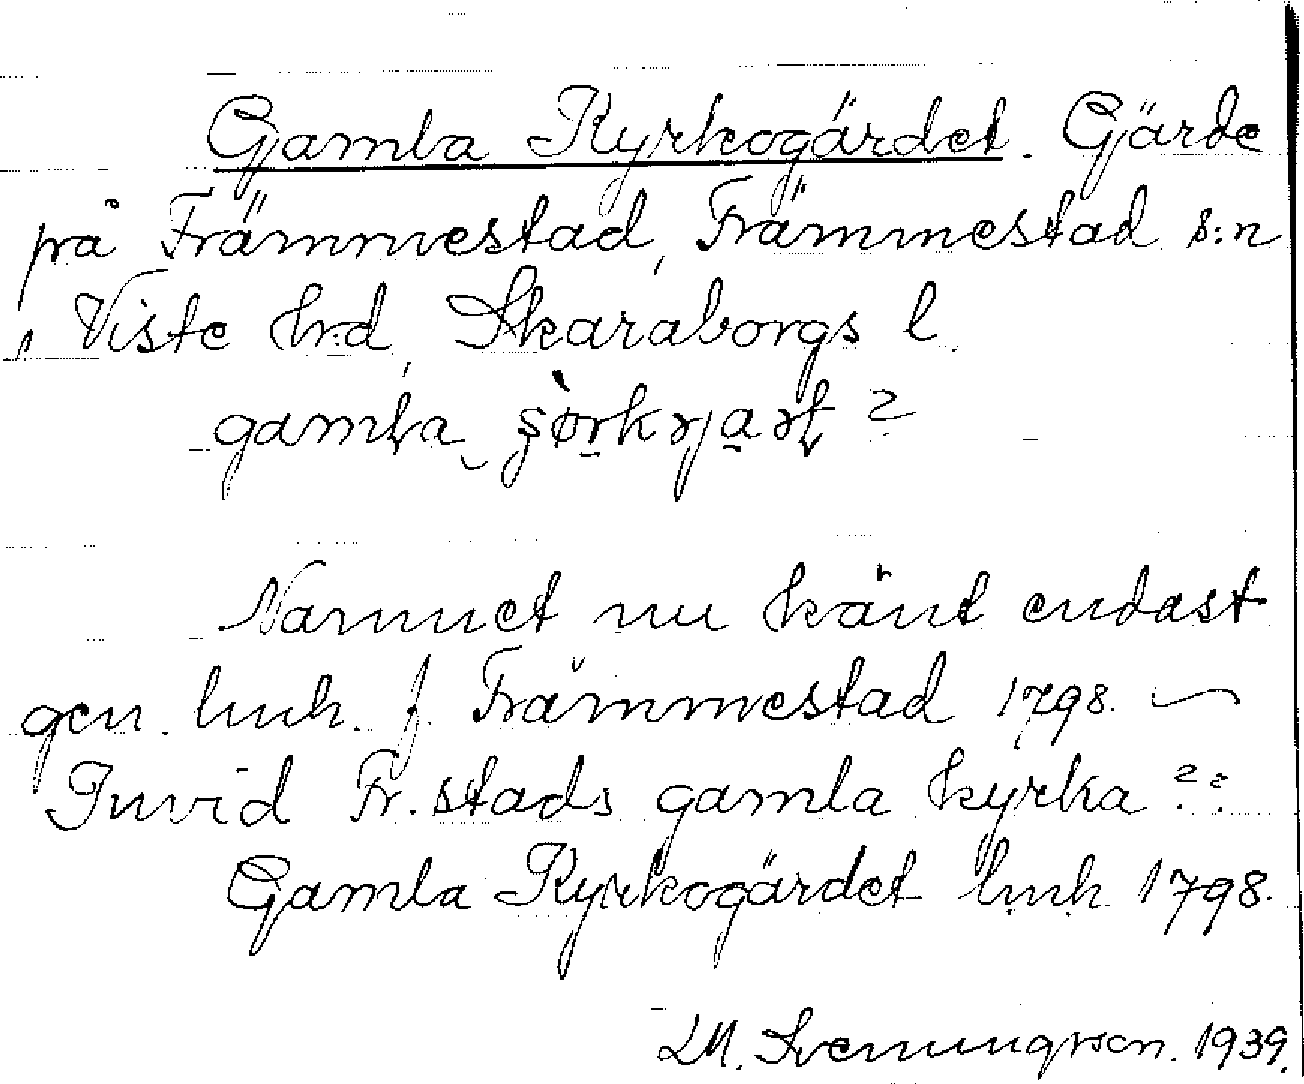 Gamla Kyrkogärdet. Gärde
på Främmestad, Främmestad s:n
, Viste hd, Skaraborgs l.
gamla
Namnet nu känt endast
gen. lmh. f. Främmestad 1798. —
Invid Fr.stads gamla kyrka??
Gamla Kyrkogärdet lmh 1798.
LM. Svenungsson. 1939.